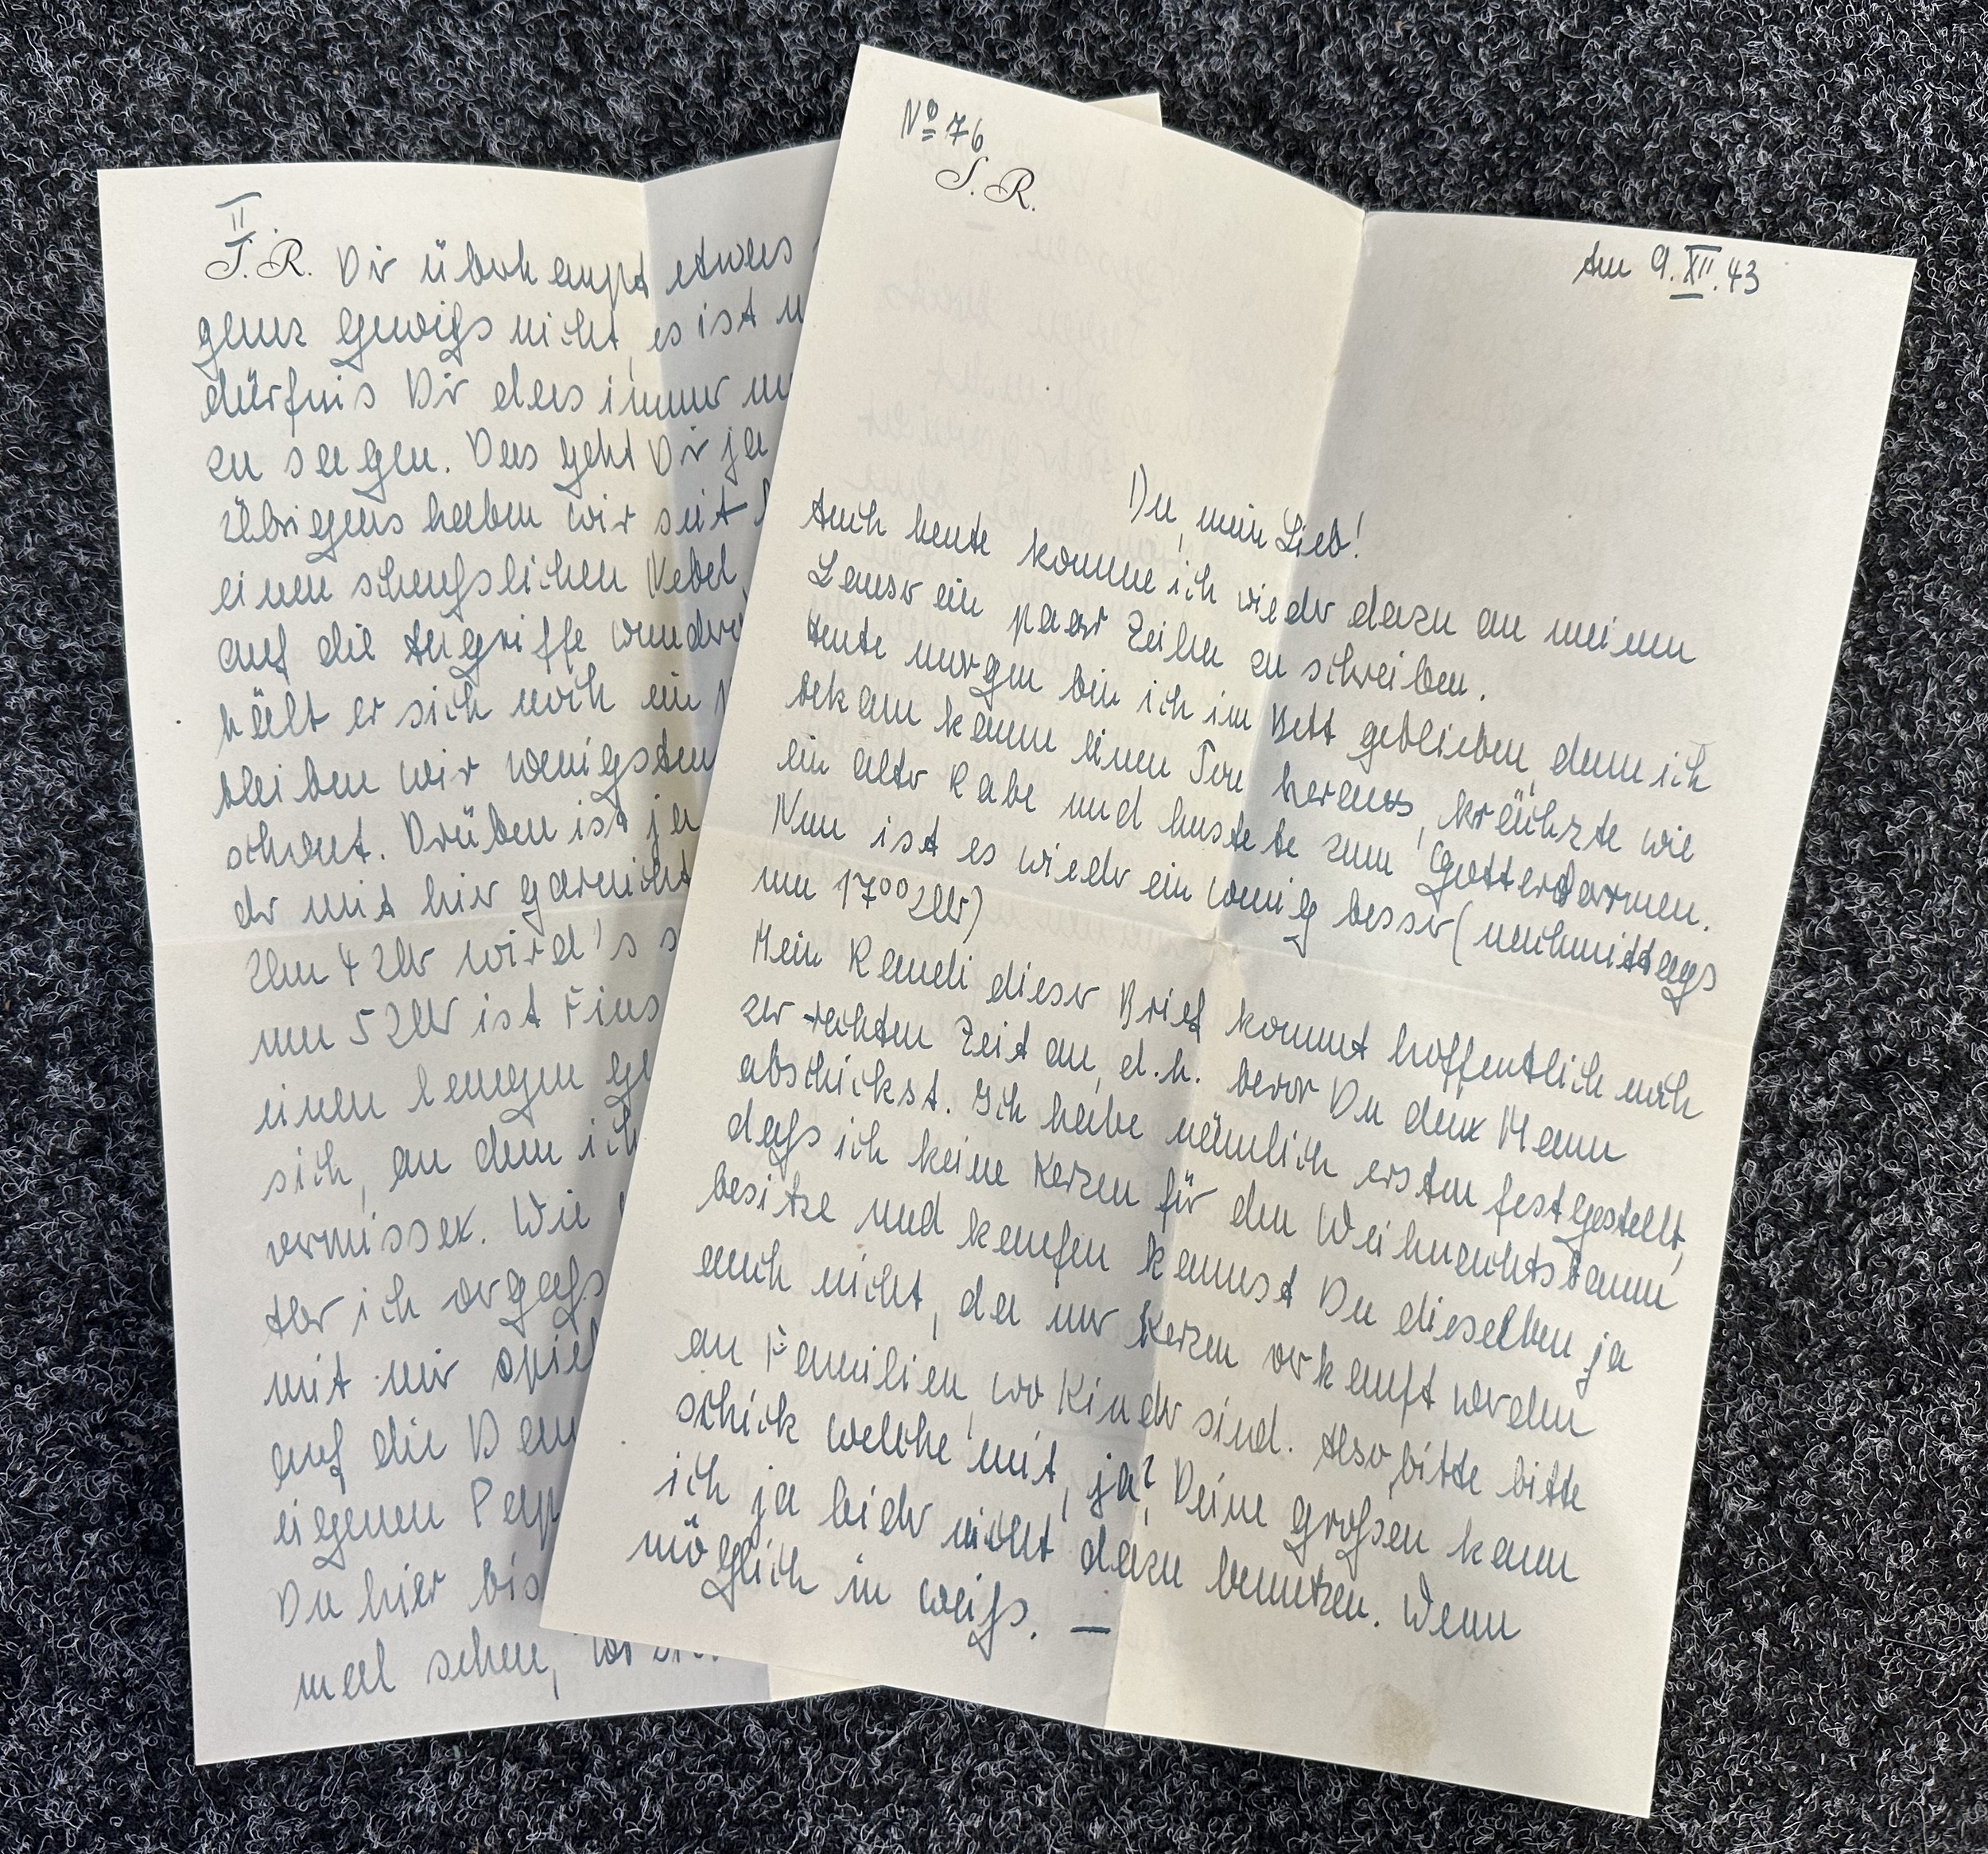 Nº 76
S. R.
Am 9. XII. 43
Du, mein Lieb!
Auch heute komme ich wieder dazu an meinen
Lauser ein paar Zeilen zu schreiben.
Heute morgen bin ich im Bett geblieben, denn ich
bekam kaum einen Ton heraus, krächzte wie
ein alter Rabe und hustete zum Gotterbarmen.
Nun ist es wieder ein wenig besser (nachmittags
um 17⁰⁰ Uhr)
Mein Raudi dieser Brief kommt hoffentlich noch
zur rechten Zeit an, d. h. bevor Du den Mann
abschickst. Ich habe nämlich ersten festgestellt,
daß ich keine Kerzen für den Weihnachtsbaum
besitze und kaufen kannst Du dieselben ja
auch nicht, da nur Kerzen verkauft werden
an Familien, wo Kinder sind. Also, bitte bitte
schick welche mit, ja? Deine großen kann
ich ja leider nicht dazu benutzen. Wenn
möglich in weiß. —
II
S. R. Dir überhaupt etwas
ganz gewiß nicht, es ist
dürfnis Dir das immer
zu sagen. Das geht Dir ja
Übrigens haben wir seit
einen scheußlichen Nebel,
auf die Angriffe
hält er sich noch ein
bleiben wir wenigsten
schont. Drüben ist ja
der mit hier garnicht
Um 4 Uhr wird's
um 5 Uhr ist
einen langen
sich, an dem ich
vermisse. Wie
Aber ich vergaß
mit mir
auf die
eigenen
Du hier bis
mal sehen,